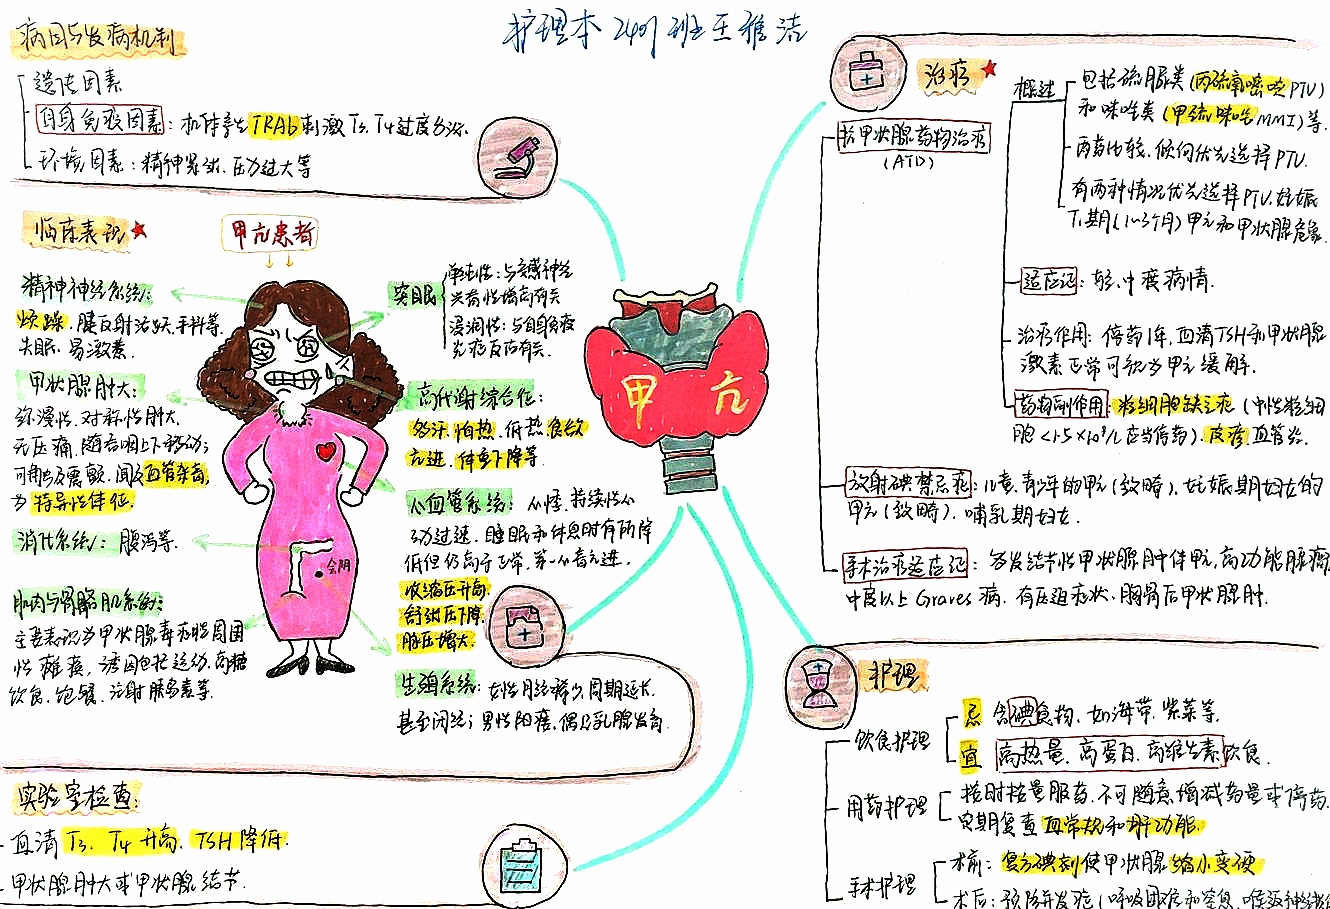 护理本2401班王雅洁
病因与发病机制
遗传因素
自身免疫因素：机体产生TRAb刺激T3、T4过度分泌.
环境因素：精神紧张、压力过大等
临床表现
甲亢患者
精神神经系统：
烦躁、腱反射活跃、手抖等.
失眠、易激惹.
甲状腺肿大：
弥漫性、对称性肿大、
无压痛，随吞咽上下移动；
可触及震颤，闻及血管杂音，
为特异性体征.
消化系统：腹泻等.
肌肉与骨骼肌系统：
主要表现为甲状腺毒症性周围
性瘫痪，诱因包括运动、高糖
饮食、饱餐、注射胰岛素等.
会阴
突眼
单纯性：与交感神经
兴奋性增高有关
浸润性：与自身免疫
炎症反应有关.
高代谢综合征：
多汗、怕热、低热、食欲
亢进、体重下降等.
心血管系统：心悸、持续性心
动过速、睡眠和休息时有所降
低但仍高于正常，第一心音亢进.
收缩压升高
舒张压下降
脉压增大.
生殖系统：女性月经稀少，周期延长，
甚至闭经；男性阳痿，偶见乳腺发育.
实验室检查：
血清T3、T4升高、TSH降低.
甲状腺肿大或甲状腺结节.
甲亢
治疗
抗甲状腺药物治疗
(ATD)
概述
包括硫脲类（丙硫氧嘧啶PTU）
和咪唑类（甲巯咪唑MMI）等.
两药比较、倾向优先选择PTU.
有两种情况优先选择PTU，妊娠
T1期（1~3个月）甲亢和甲状腺危象.
适应证：轻、中度病情.
治疗作用：停药1年，血清TSH和甲状腺
激素正常可视为甲亢缓解.
药物副作用：粒细胞缺乏症（中性粒细
胞<1.5×10⁹/L应当停药）、皮疹、血管炎.
放射碘禁忌症：儿童、青少年的甲亢（致畸）、妊娠期妇女的
甲亢（致畸）、哺乳期妇女.
手术治疗适应证：多发结节性甲状腺肿伴甲亢，高功能腺瘤，
中度以上Graves病，有压迫症状、胸骨后甲状腺肿.
护理
饮食护理
忌 含碘食物，如海带、紫菜等.
宜 高热量、高蛋白、高维生素饮食.
用药护理
按时按量服药、不可随意增减药量或停药.
定期复查血常规和肝功能.
手术护理
术前：复方碘剂使甲状腺缩小变硬
术后：预防并发症（呼吸困难和窒息、喉返神经